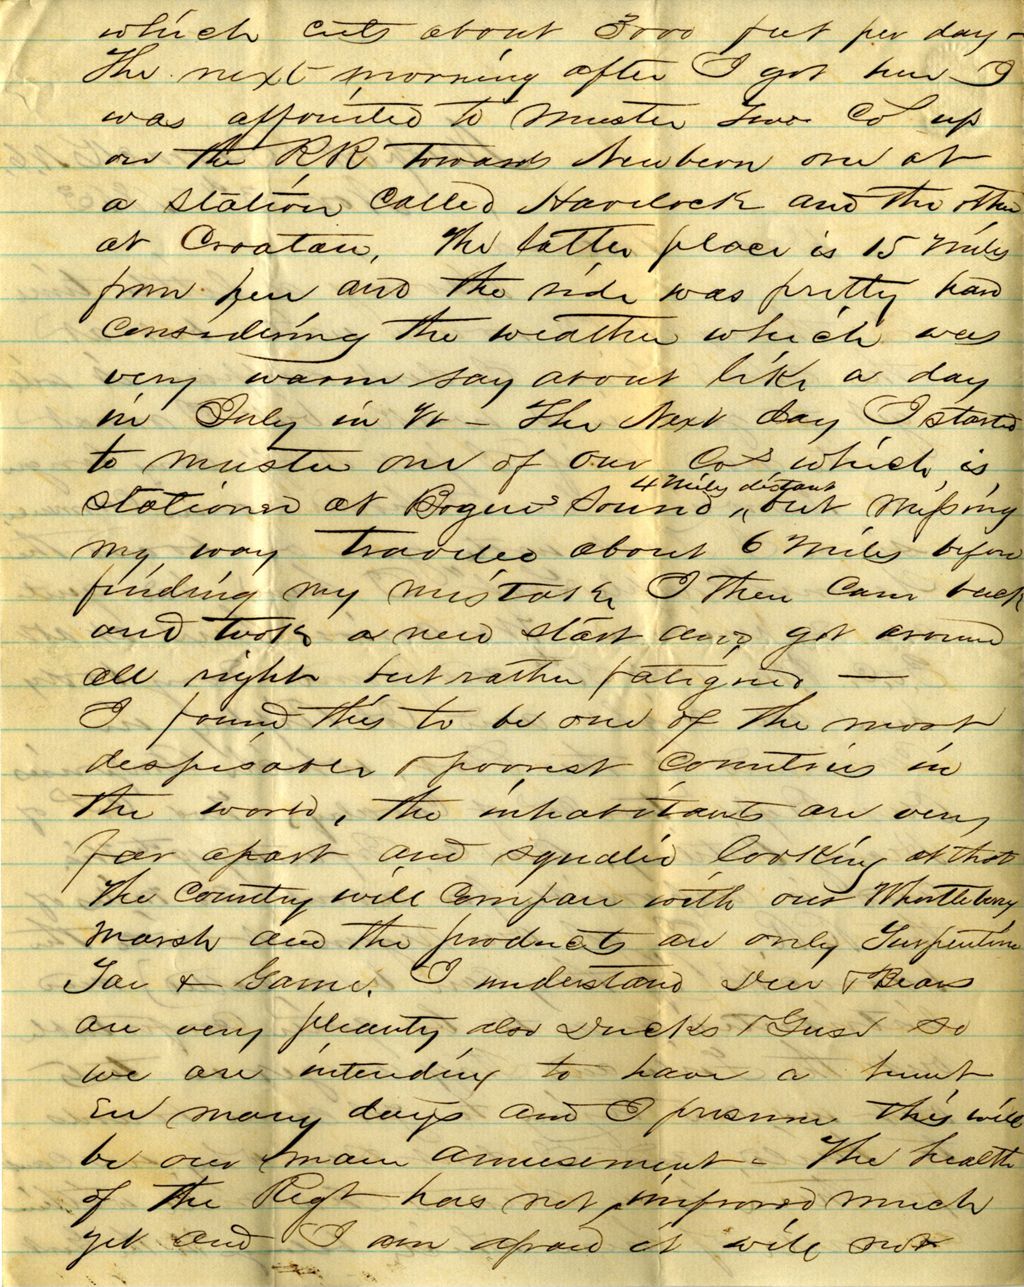 which cuts about 3000 feet per day -
The next morning after I got here I
was appointed to muster two Cos up
on the RR towards Newbern one at
a station called Havelock and the other
at Croatan, The latter place is 15 miles
from here and the ride was pretty hard
considering the weather which was
very warm say about like a day
in July in Vt - The Next day I started
to muster one of our Cos which is
stationed at Bogue Sound, 4 miles distant but missing
my way traveled about 6 miles before
finding my mistake I then came back
and took a new start and got around
all right but rather fatigued —
I found this to be one of the most
despisable & poorest countries in
the world, the inhabitants are very
far apart and squalid looking at that
The country will compare with our Whortleberry
marsh and the products are only Turpentine
Tar & Game. I understand Deer & Bears
are very pleanty also Ducks & Geese so
we are intending to have a hunt
ere many days and I presume this will
be our main amusement - The health
of the Regt has not improved much
yet and I am afraid it will not